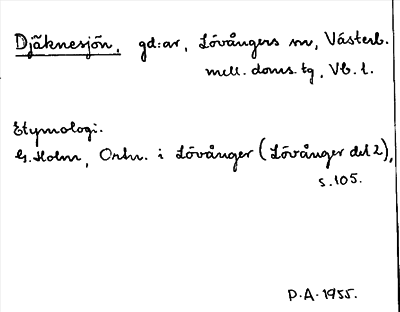 Djäknesjön, gd:ar, Lövångers sn, Västerb.
mell. doms. tg, Vb. l.
Etymologi.
G. Holm, Ortn. i Lövånger (Lövånger del 2),
s. 105.
P.A. 1955.